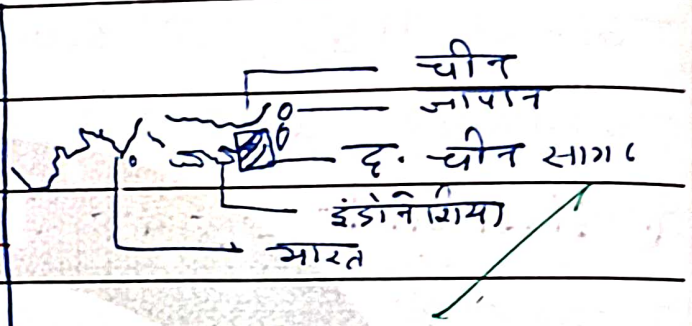 चीन
जापान
द. चीन सागर
इंडोनेशिया
भारत